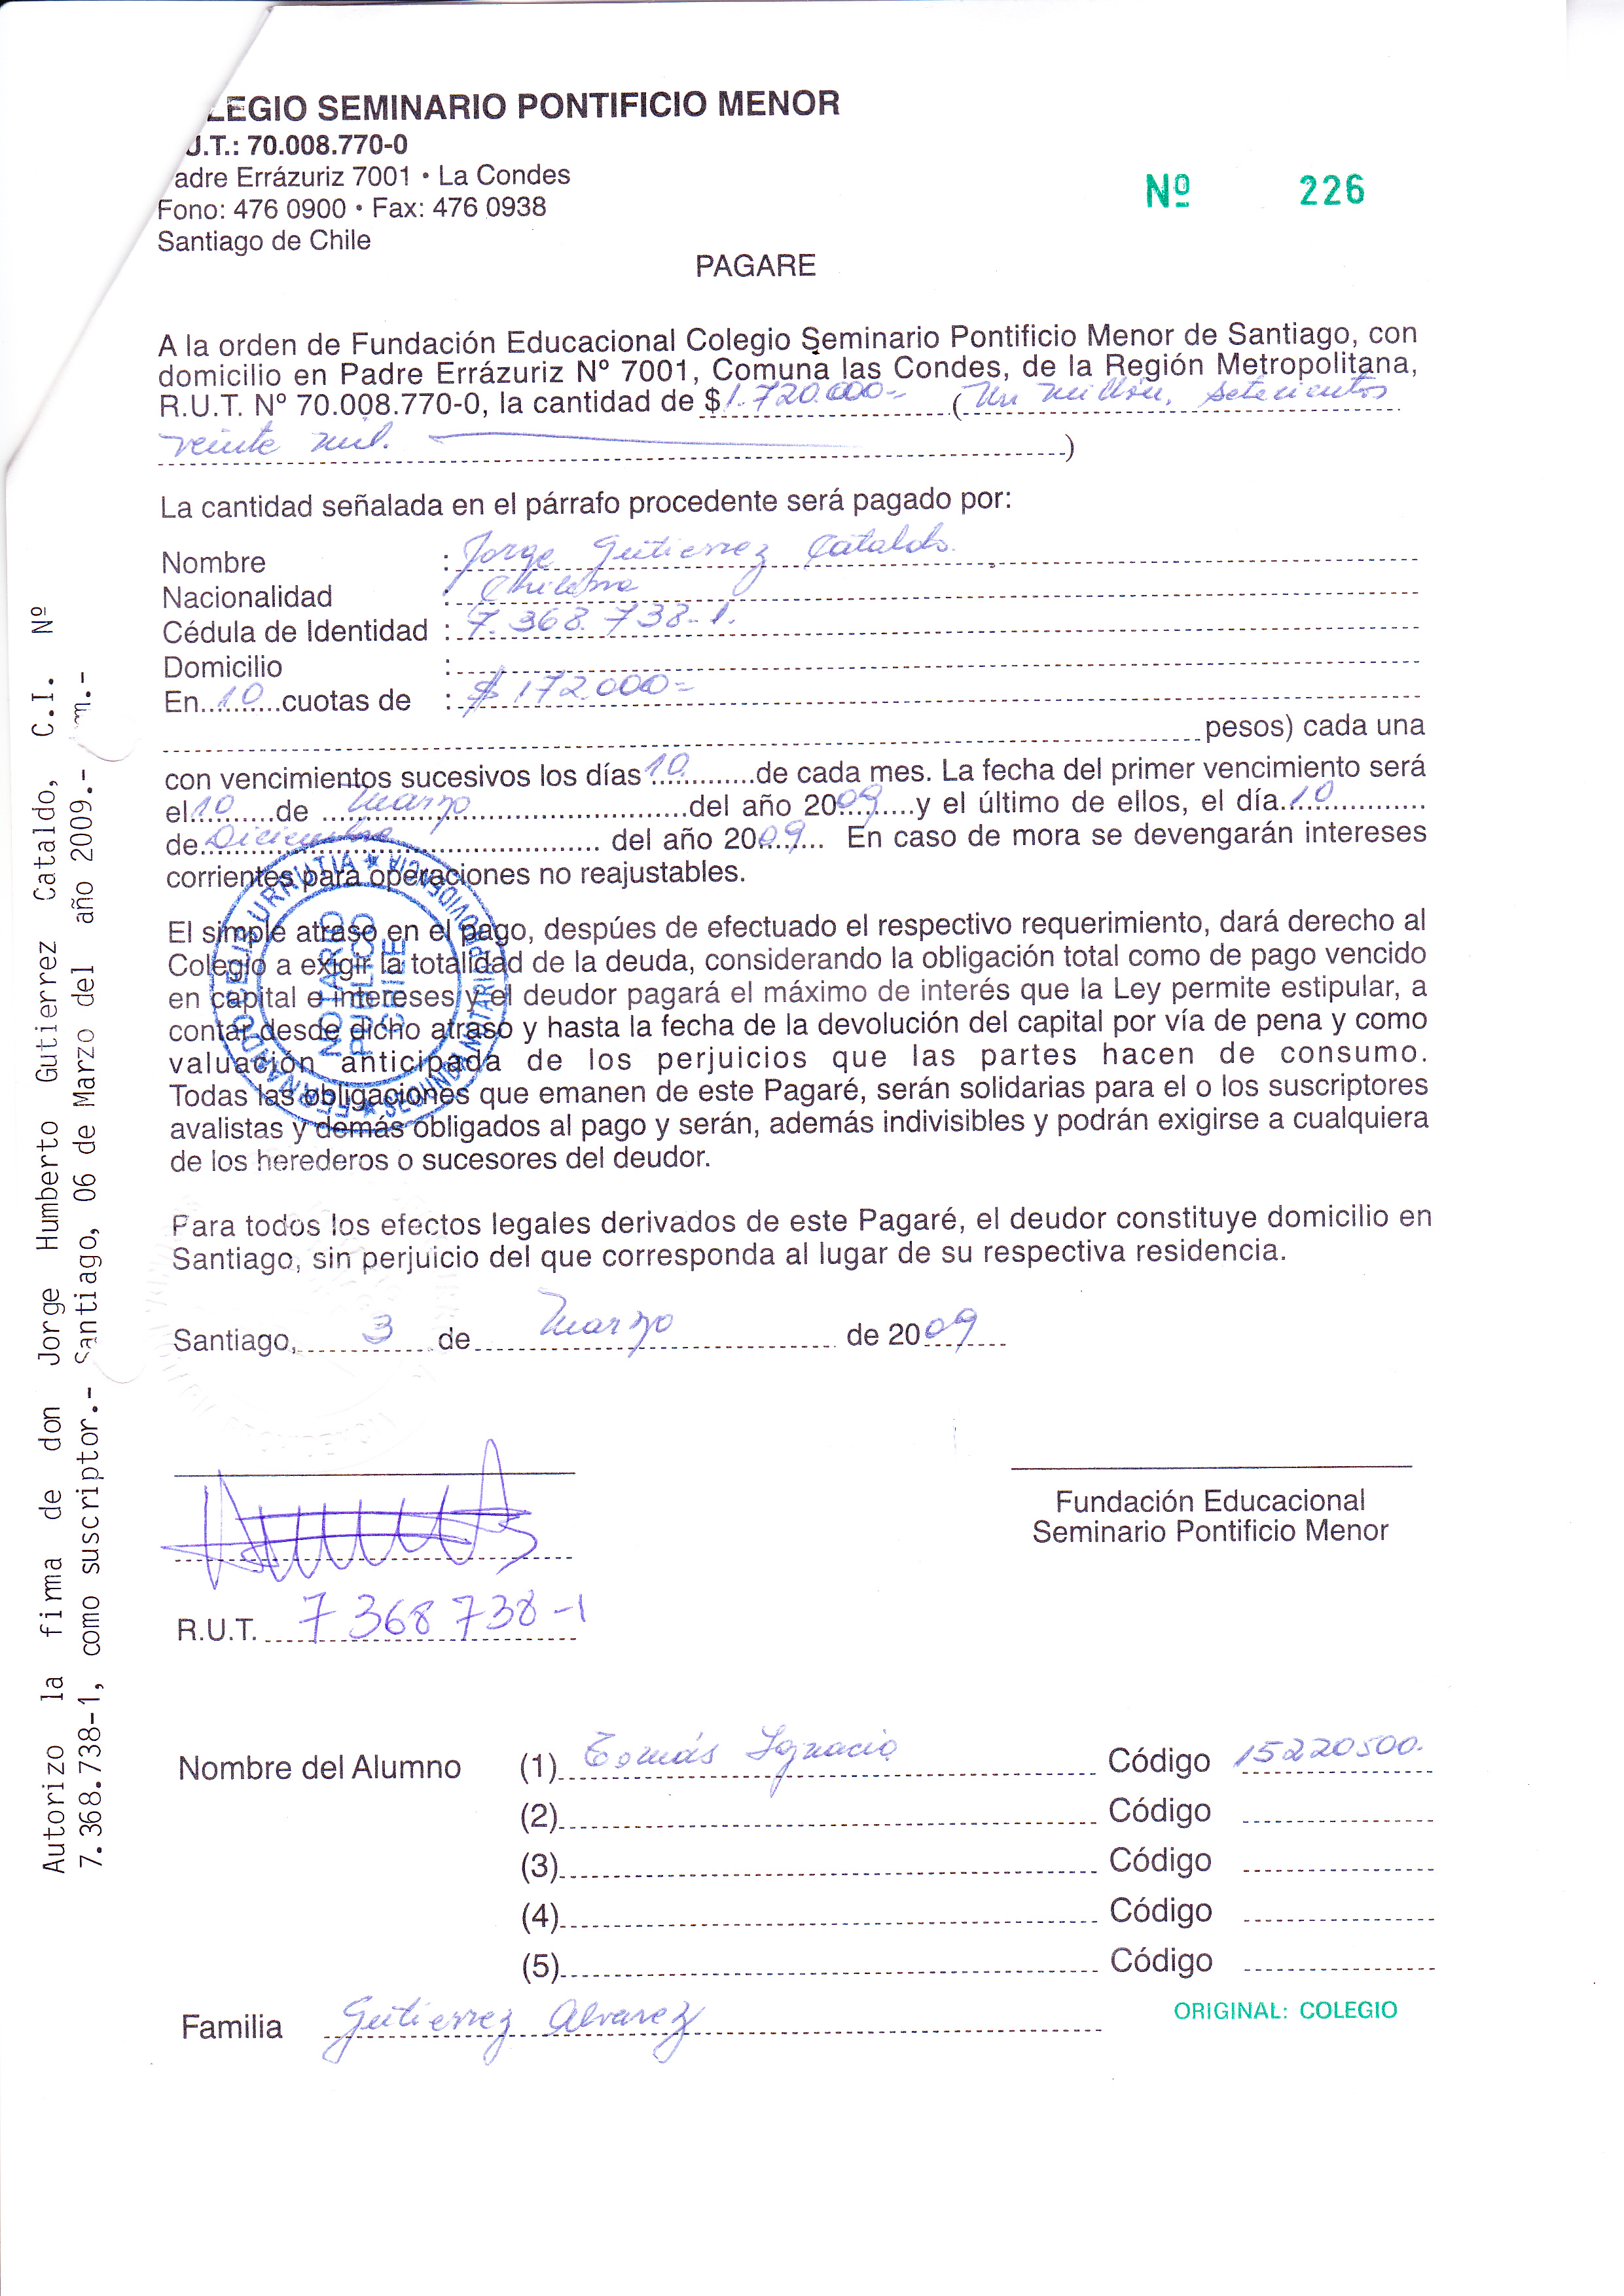 LEGIO SEMINARIO PONTIFICIO MENOR
U.T.: 70.008.770-0
adre Errázuriz 7001 • La Condes
Fono: 476 0900 • Fax: 476 0938
Santiago de Chile
Nº 226
PAGARE
A la orden de Fundación Educacional Colegio Seminario Pontificio Menor de Santiago, con
domicilio en Padre Errázuriz Nº 7001, Comuna las Condes, de la Región Metropolitana,
R.U.T. Nº 70.008.770-0, la cantidad de $ 1.720.000- (Un millón, setecientos
veinte mil. )
La cantidad señalada en el párrafo procedente será pagado por:
Nombre : Jorge Gutierrez Cataldo.
Nacionalidad : Chilena
Cédula de Identidad : 7.368.738-1.
Domicilio :
En 10 cuotas de : $ 172.000=
pesos) cada una
con vencimientos sucesivos los días 10 de cada mes. La fecha del primer vencimiento será
el 10 de Marzo del año 2009 y el último de ellos, el día 10
de Diciembre del año 2009. En caso de mora se devengarán intereses
corrientes para operaciones no reajustables.
El simple atraso en el pago, despúes de efectuado el respectivo requerimiento, dará derecho al
Colegio a exigir la totalidad de la deuda, considerando la obligación total como de pago vencido
en capital e intereses y el deudor pagará el máximo de interés que la Ley permite estipular, a
contar desde dicho atraso y hasta la fecha de la devolución del capital por vía de pena y como
valuación anticipada de los perjuicios que las partes hacen de consumo.
Todas las obligaciones que emanen de este Pagaré, serán solidarias para el o los suscriptores
avalistas y demás obligados al pago y serán, además indivisibles y podrán exigirse a cualquiera
de los herederos o sucesores del deudor.
NOTARIO
PUBLICO
CHILE
Para todos los efectos legales derivados de este Pagaré, el deudor constituye domicilio en
Santiago, sin perjuicio del que corresponda al lugar de su respectiva residencia.
Santiago, 3 de Marzo de 2009
Fundación Educacional
Seminario Pontificio Menor
R.U.T. 7368738-1
Nombre del Alumno (1) Tomás Ignacio Código 15220500.
(2) Código
(3) Código
(4) Código
(5) Código
Familia Gutierrez Alvarez
ORIGINAL: COLEGIO
Autorizo la firma de don Jorge Humberto Gutierrez Cataldo, C.I. Nº
7.368.738-1, como suscriptor.- Santiago, 06 de Marzo del año 2009.- m.-